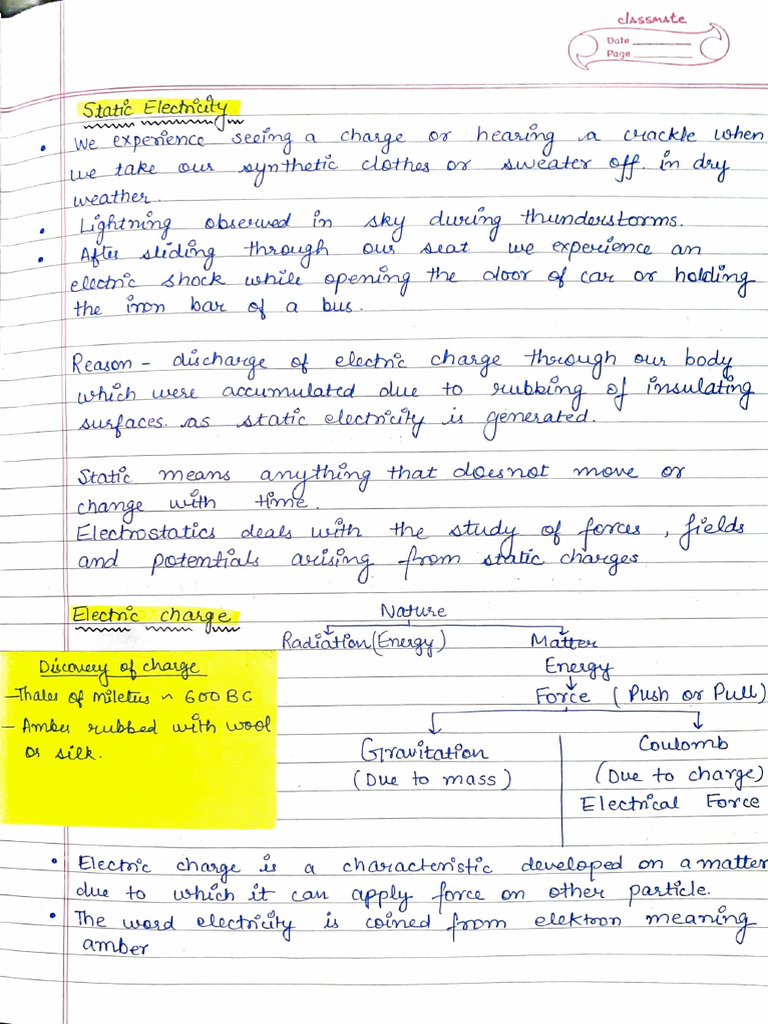 classmate
Date
Page
Static Electricity
• We experience seeing a charge or hearing a crackle when
we take our synthetic clothes or sweater off in dry
weather.
• Lightning observed in sky during thunderstorms.
• After sliding through our seat we experience an
electric shock while opening the door of car or holding
the iron bar of a bus.
Reason - discharge of electric charge through our body
which were accumulated due to rubbing of insulating
surfaces as static electricity is generated.
Static means anything that doesnot move or
change with time.
Electrostatics deals with the study of forces, fields
and potentials arising from static charges
Electric charge
Nature
Radiation (Energy) Matter
Energy
Force (Push or Pull)
Gravitation Coulomb
(Due to mass) (Due to charge)
Electrical Force
Discovery of charge
- Thales of miletus ~ 600 BC
- Amber rubbed with wool
or silk.
• Electric charge is a characteristic developed on a matter
due to which it can apply force on other particle.
• The word electricity is coined from elektron meaning
amber